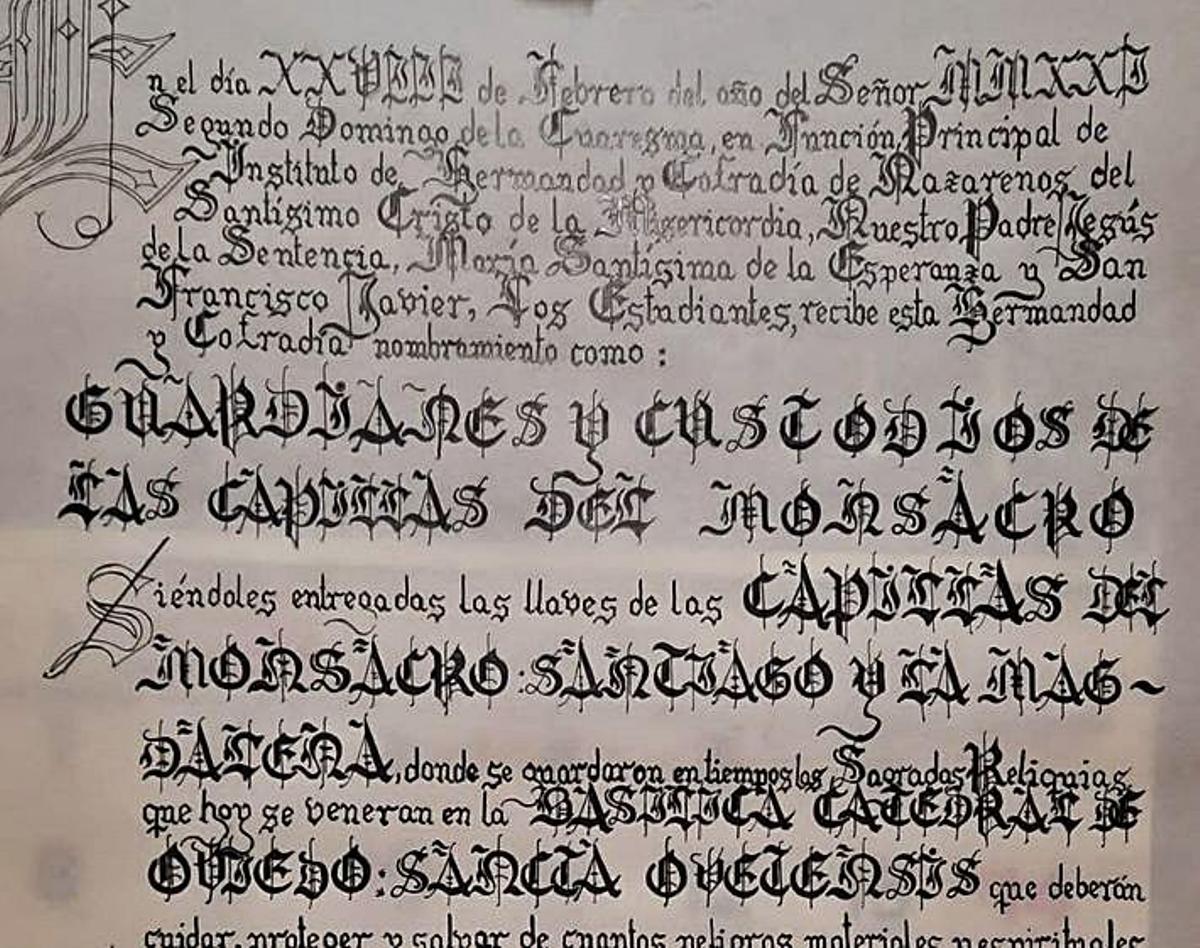 En el día XXVIII de Febrero del año del Señor MMXXI
Segundo Domingo de la Cuaresma, en Función Principal de
Instituto de Hermandad y Cofradía de Nazarenos del
Santísimo Cristo de la Misericordia, Nuestro Padre Jesús
de la Sentencia, María Santísima de la Esperanza y San
Francisco Javier, Los Estudiantes, recibe esta Hermandad
y Cofradía nombramiento como :
GUARDIANES Y CUSTODIOS DE
LAS CAPILLAS DEL MONSACRO
Siéndoles entregadas las llaves de las CAPILLAS DEL
MONSACRO : SANTIAGO Y LA MAG~
DALENA, donde se guardaron en tiempos las Sagradas Reliquias
que hoy se veneran en la BASILICA CATEDRAL DE
OVIEDO : SANCTA OVETENSIS que deberán
cuidar, proteger y salvar de cuantos peligros materiales y espirituales